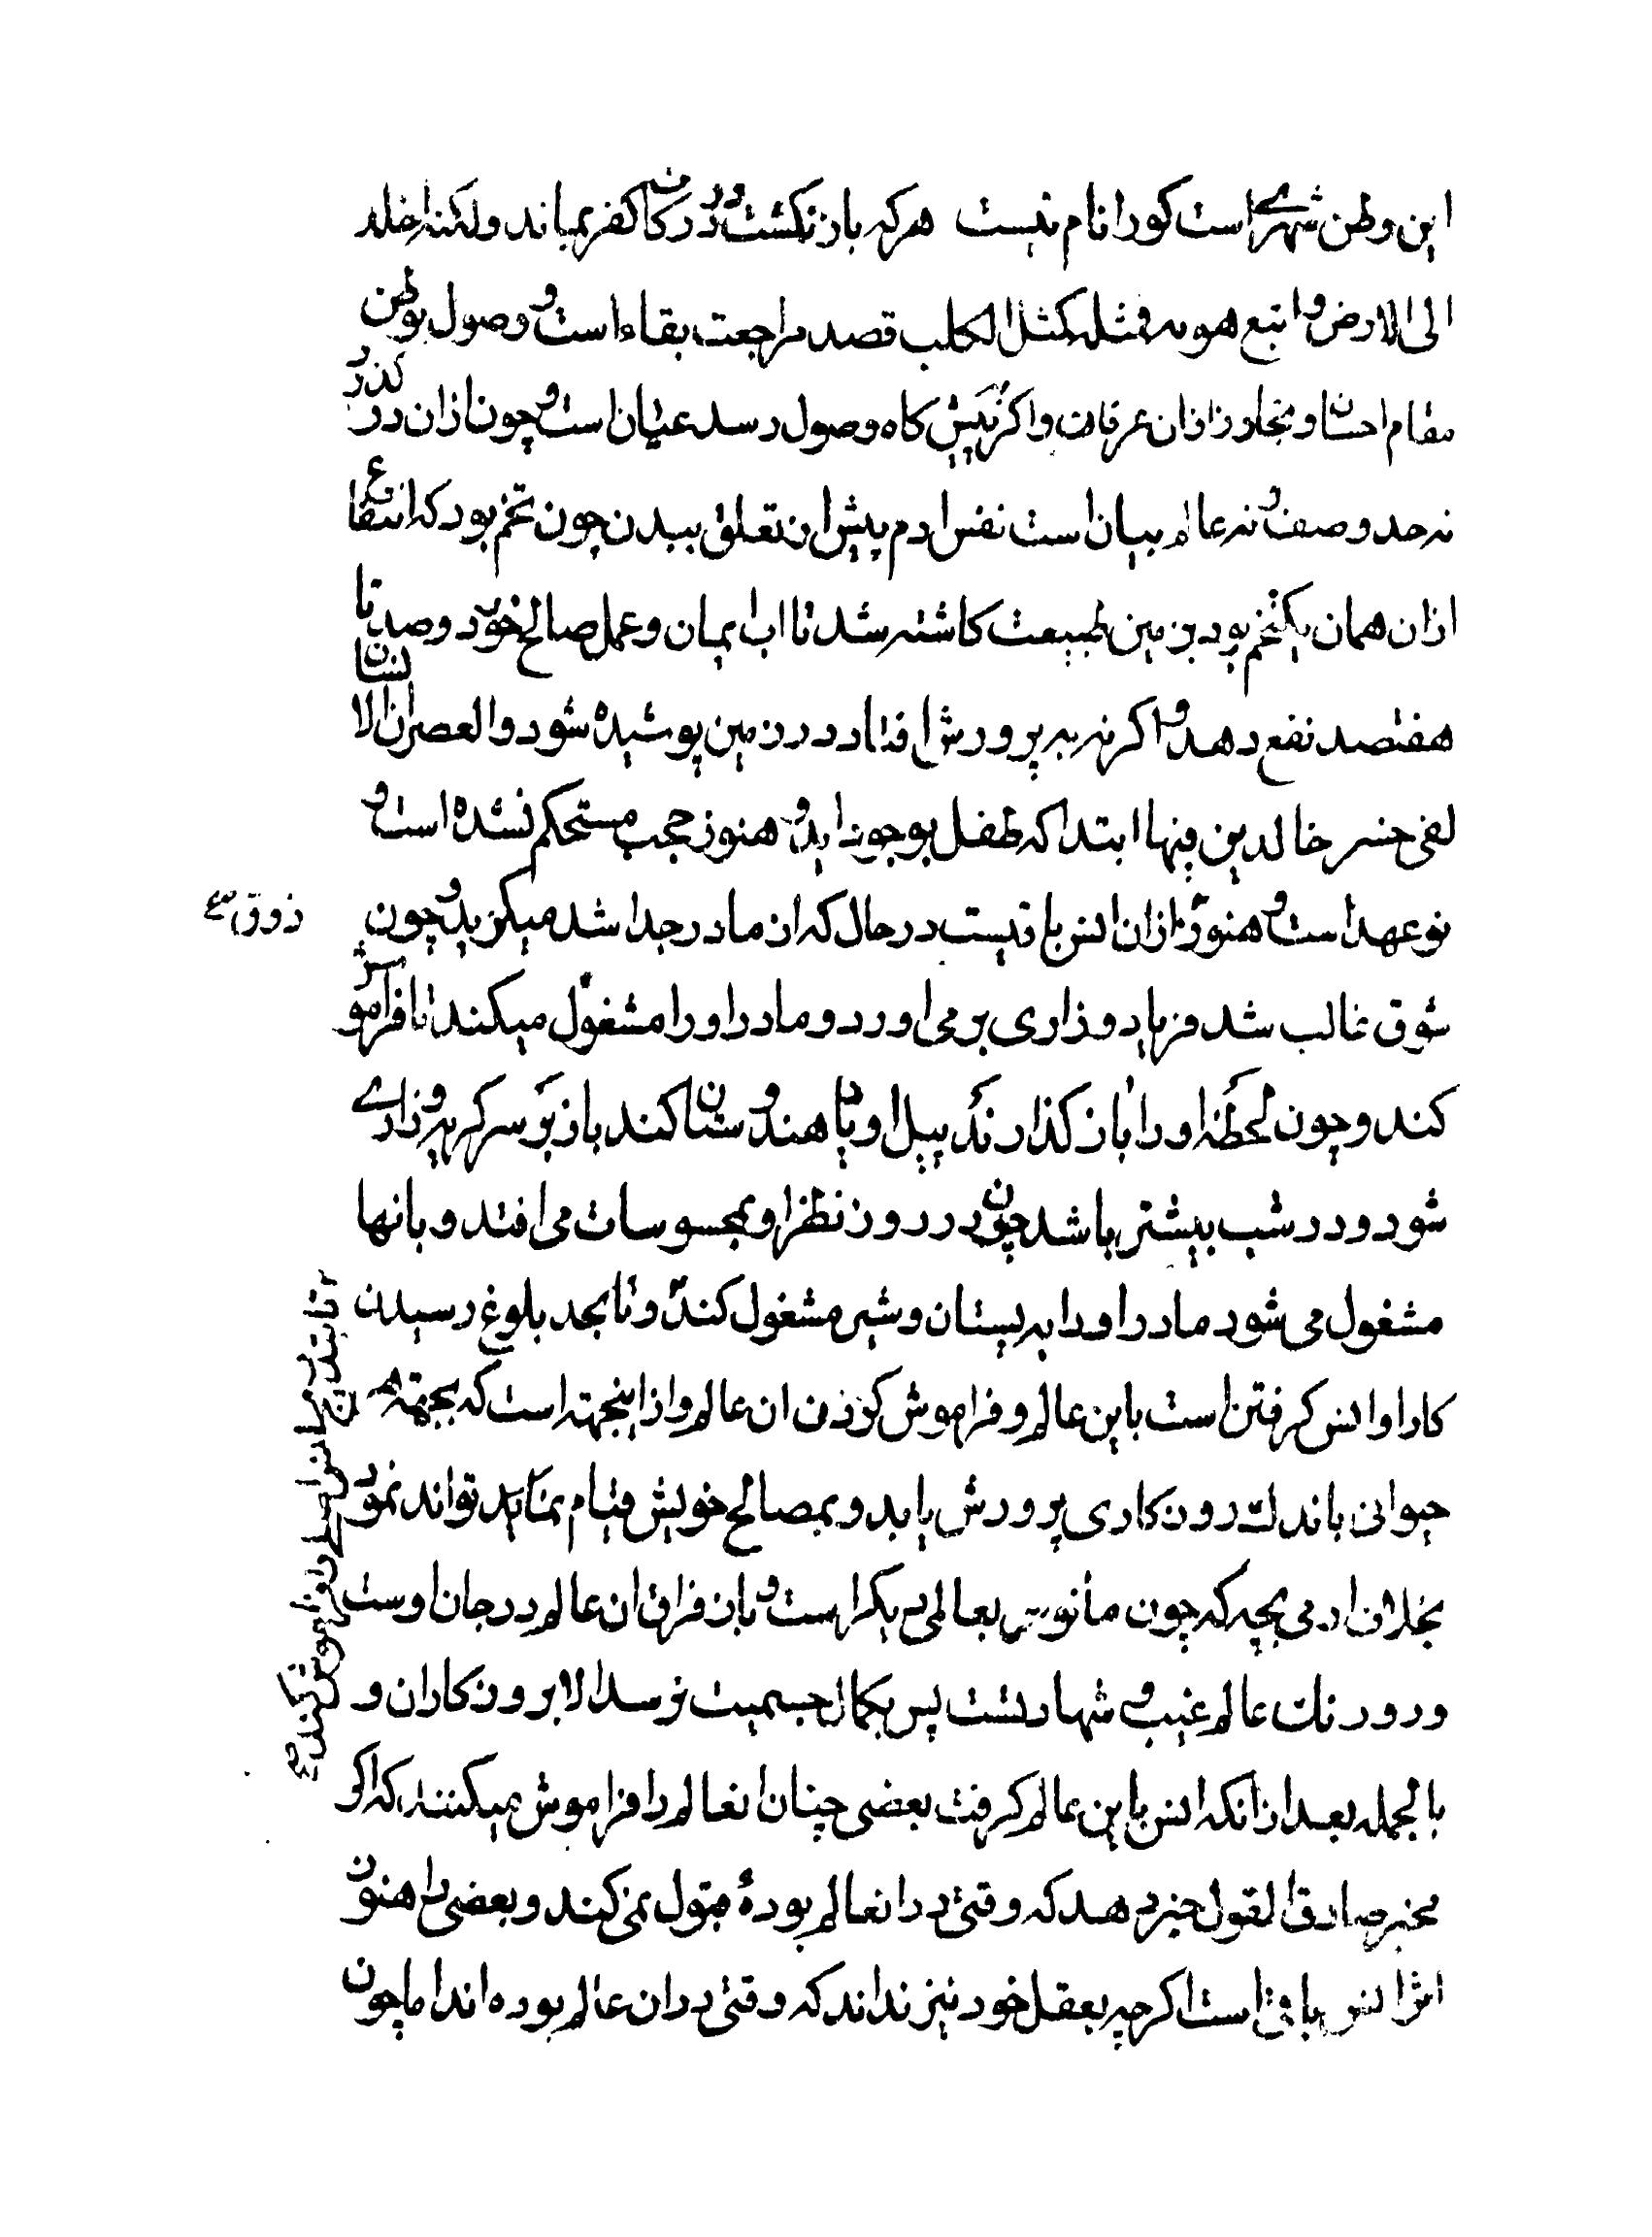 این وطن شهرے است کورا نام نیست هر که باز نگشت و در کان کفر بماند ولکنه اخلد
الی الارض و اتبع هویه فمثله کمثل الکلب قصد مراجعت بقاء است و وصول بوطن
مقام احسان و تجاوز ازان عرفان و اکر پیش کاه وصول رسد عیان است و چون ازان در کذرد
نه حد وصف و نه عالم بیان است نفس ادم پیش از تعلق ببدن چون تخم بود که انتفاع
ازان همان یکتخم بود بزمین طبیعت کاشته شد تا اب ایمان و عمل صالح خورد و صد تا
هفتصد نفع دهد و اکر نه به پرورش افتاد در زمین پوشیده شود والعصر ان الانسان
لفی خسر خالدین فیها ابتدا که طفل بوجود اید و هنوز حجب مستحکم نشده است و
نو عهد است و هنوز ازان انس باقیست در حال که از مادر جدا شد میکرید و چون
ذوق
شوق غالب شد فریاد و زاری بر می اورد و مادر اورا مشغول میکند تا فراموش
کند و چون لحظه اورا باز کذارند پیل او یاد هندوستان کند باز بر سر کریه و زارے
شود و در شب بیشتر باشد چون در روز نظر او بمحسوسات می افتد و بانها
مشغول می شود مادر اورا به پستان و شیر مشغول کند و تا بحد بلوغ رسیدن
کار او انس کرفتن است باین عالم و فراموش کردن ان عالم و ازاینجهته است که بجهته
حیوانی باندک روزکاری پرورش یابد و بمصالح خویش قیام نماید تواند نمود
بخلاف ادمی بچه که چون مأنوس بعالمی دیکر است و بار فراق ان عالم در جان اوست
و دورنک عالم غیب و شهادتست پس بکمال جسمیت نرسد الا بروزکاران و
تا بتدریج انس اصلی را فراموش کند
بالجمله بعد ازانکه انس باین عالم کرفت بعضی چنان انعالم را فراموش میکنند که اکر
مخبر صادق القول خبر دهد که وقتی در انعالم بودهٔ قبول نمی کند و بعضی را هنوز
اثر انس باقی است اکر چه بعقل خود نیز نداند که وقتی دران عالم بوده اند اما چون